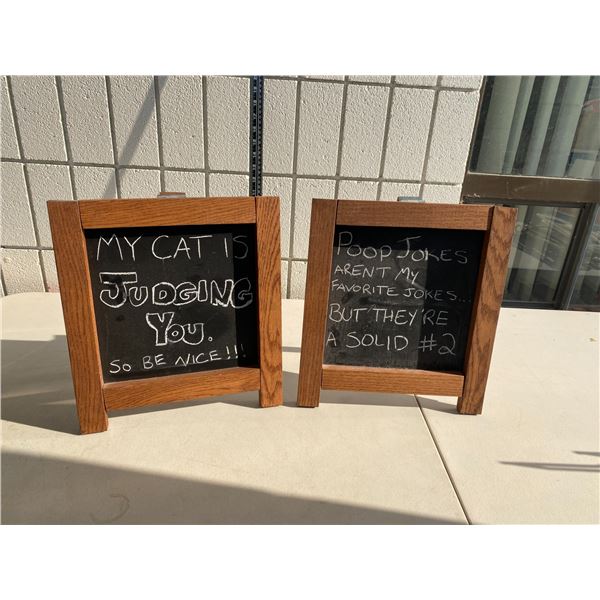 MY CAT IS
JUDGING
YOU.
SO BE NICE!!!
POOP JOKES
ARENT MY
FAVORITE JOKES...
BUT THEY'RE
A SOLID #2